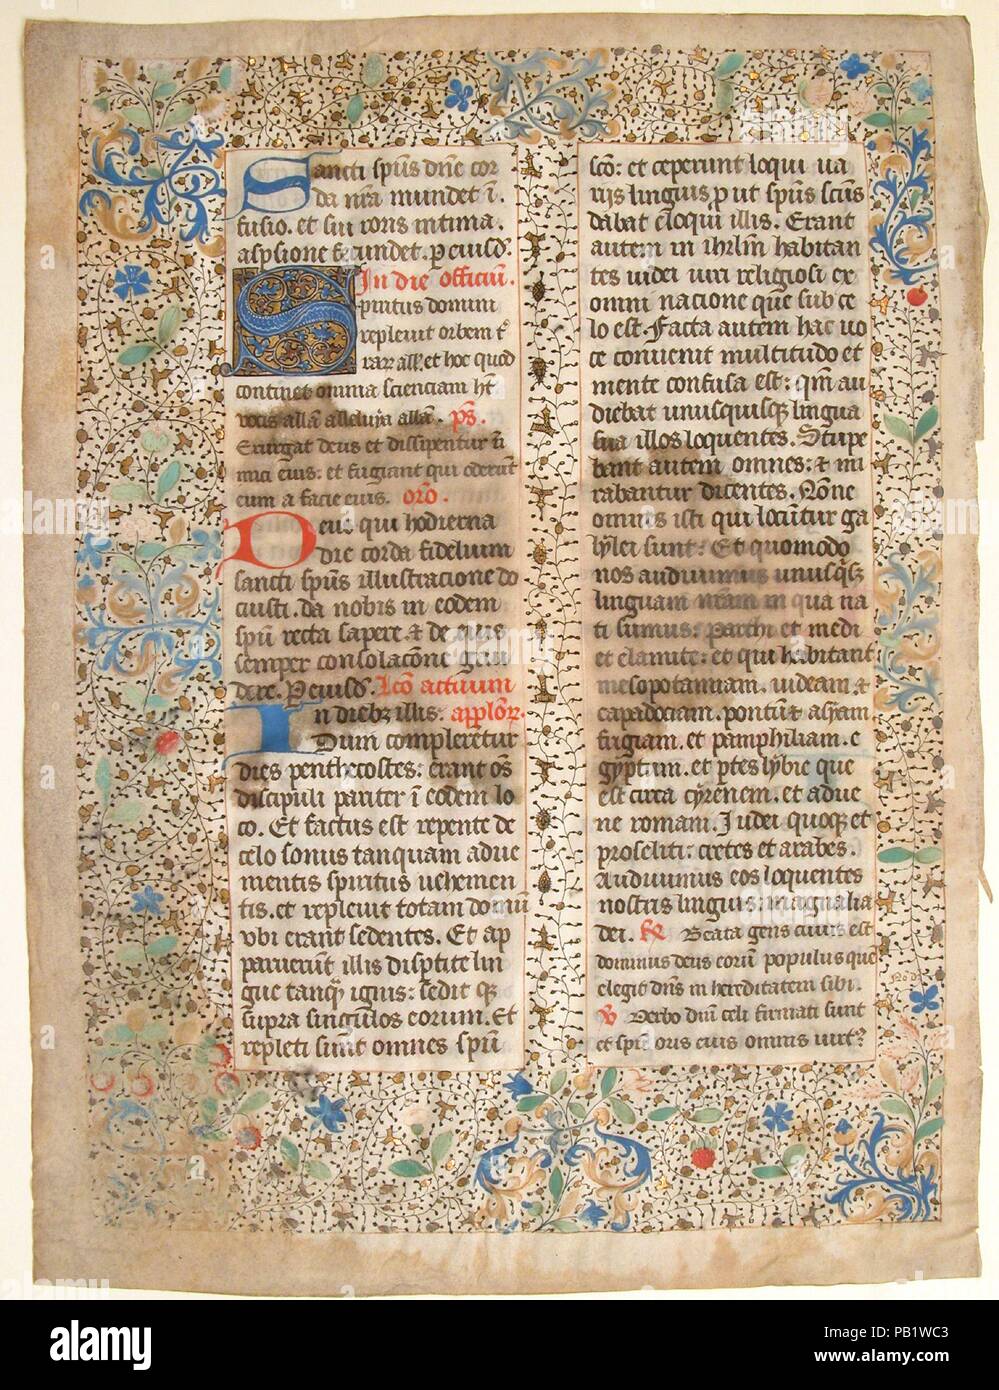 Sancti spūs dñe cor
da nr̄a mundet ī
fusio. et sui roris intima
aspsione fecundet. p eiusdē.
In die officiū.
Spiritus domini
repleuit orbem t̄
rarꝝ all̄. et hoc quod
continet omnia scienciam ht̄
uocis allā alleluya allā. ps̄.
Exurgat deus et dissipentur ī
mici eius: et fugiant qui oderunt
eum a facie eius. orō.
Deus qui hodierna
die corda fidelium
sancti spūs illustracione do
cuisti. da nobis in eodem
spū recta sapere & de eius
semper consolacōne gau
dere. P eiusdē. Lcō actuum
In diebꝫ illis. applōꝝ.
Dum compleretur
dies penthecostes: erant oēs
discipuli pariter ī eodem lo
co. Et factus est repente de
celo sonus tanquam adue
mentis spiritus uehemen
tis. et repleuit totam domū
vbi erant sedentes. Et ap
paruerūt illis disptite lin
gue tanq̄ ignis: sedit qꝫ
supra singulos eorum. Et
repleti sunt omnes spū
scō: et ceperunt loqui ua
rijs linguis, p ut spūs scūs
dabat eloqui illis. Erant
autem in ihrlm̄ habitan
tes iudei uiri religiosi ex
omni nacione que sub ce
lo est. Facta autem hac uo
ce conuenit multitudo et
mente confusa est: qm̄ au
diebat unusquisqꝫ lingua
sua illos loquentes. Stupe
bant autem omnes: & mi
rabantur dicentes. Nōne
omnes isti qui locūtur ga
lylei sunt: Et quomodo
nos audiuimus unusqꝫ
linguam nr̄am in qua na
ti sumus: Parthi et medi
et elamite: et qui habitant
mesopotamiam. iudeam &
capadociam. pontū & asyam
frigiam. et pamphiliam. e
gyptum. et ptes lybie que
est circa cyrenem. et adue
ne romani. Judei quoqꝫ et
proseliti: cretes et arabes.
Audiuimus eos loquentes
nostris linguis: magnalia
dei. Beata gens cuius est
dominus deus eorū populus que
elegit dn̄s in hereditatem sibi.
v̄ Verbo dn̄i celi firmati sunt
et spū oris eius omnis uirtꝰ
alamy
PB1WC3
www.alamy.com